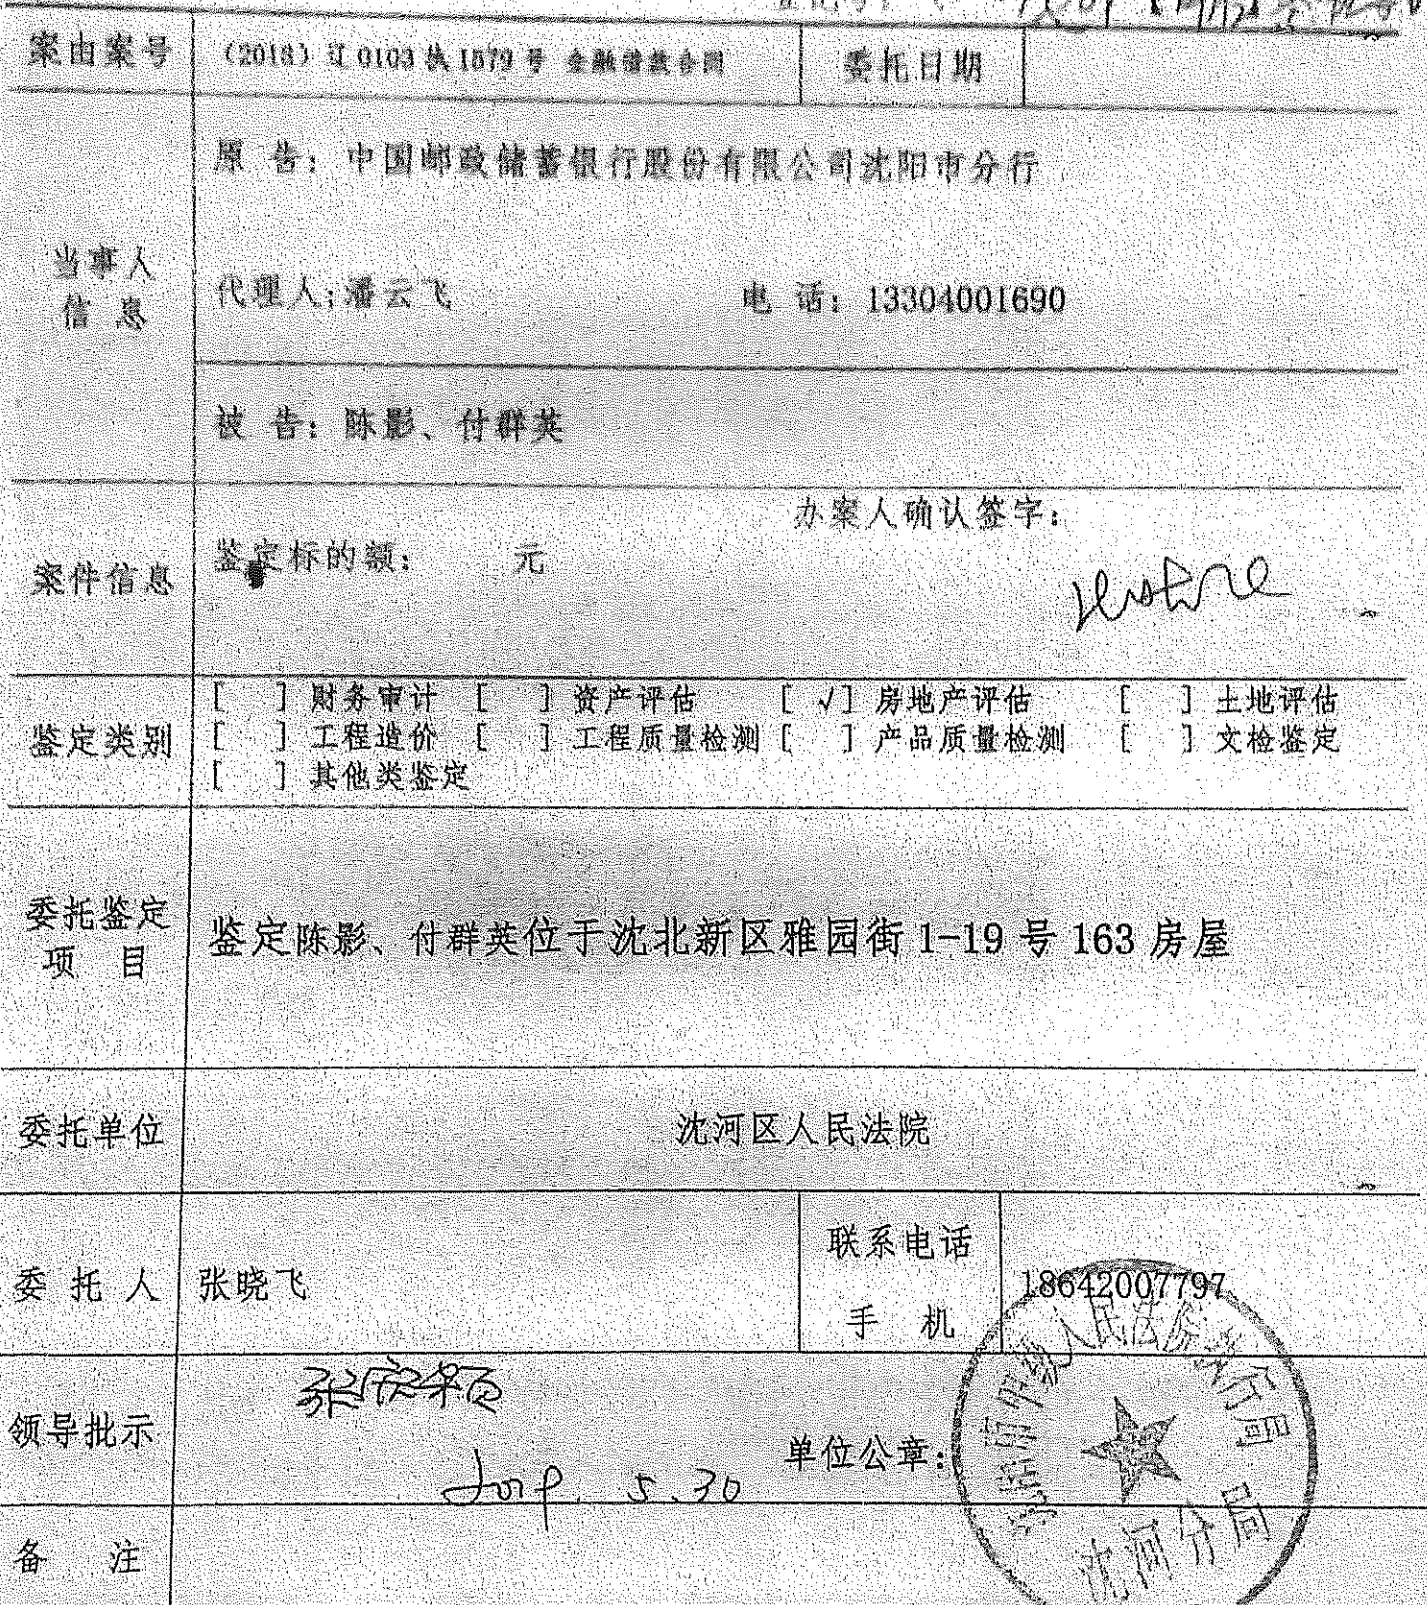 案由案号 (2018) 辽 0103 执 1579 号 金融借款合同 委托日期
原 告：中国邮政储蓄银行股份有限公司沈阳市分行
当事人
信 息
代理人：潘云飞 电 话：13304001690
被 告：陈影、付群英
办案人确认签字：
案件信息 鉴定标的额： 元
[ ] 财务审计 [ ] 资产评估 [ √] 房地产评估 [ ] 土地评估
鉴定类别 [ ] 工程造价 [ ] 工程质量检测 [ ] 产品质量检测 [ ] 文检鉴定
[ ] 其他类鉴定
委托鉴定
项 目
鉴定陈影、付群英位于沈北新区雅园街 1-19 号 163 房屋
委托单位 沈河区人民法院
委 托 人 张晓飞
联系电话
手 机
18642007797
领导批示
2019. 5.30
单位公章：
沈阳市中级人民法院执行局
沈河分局
备 注